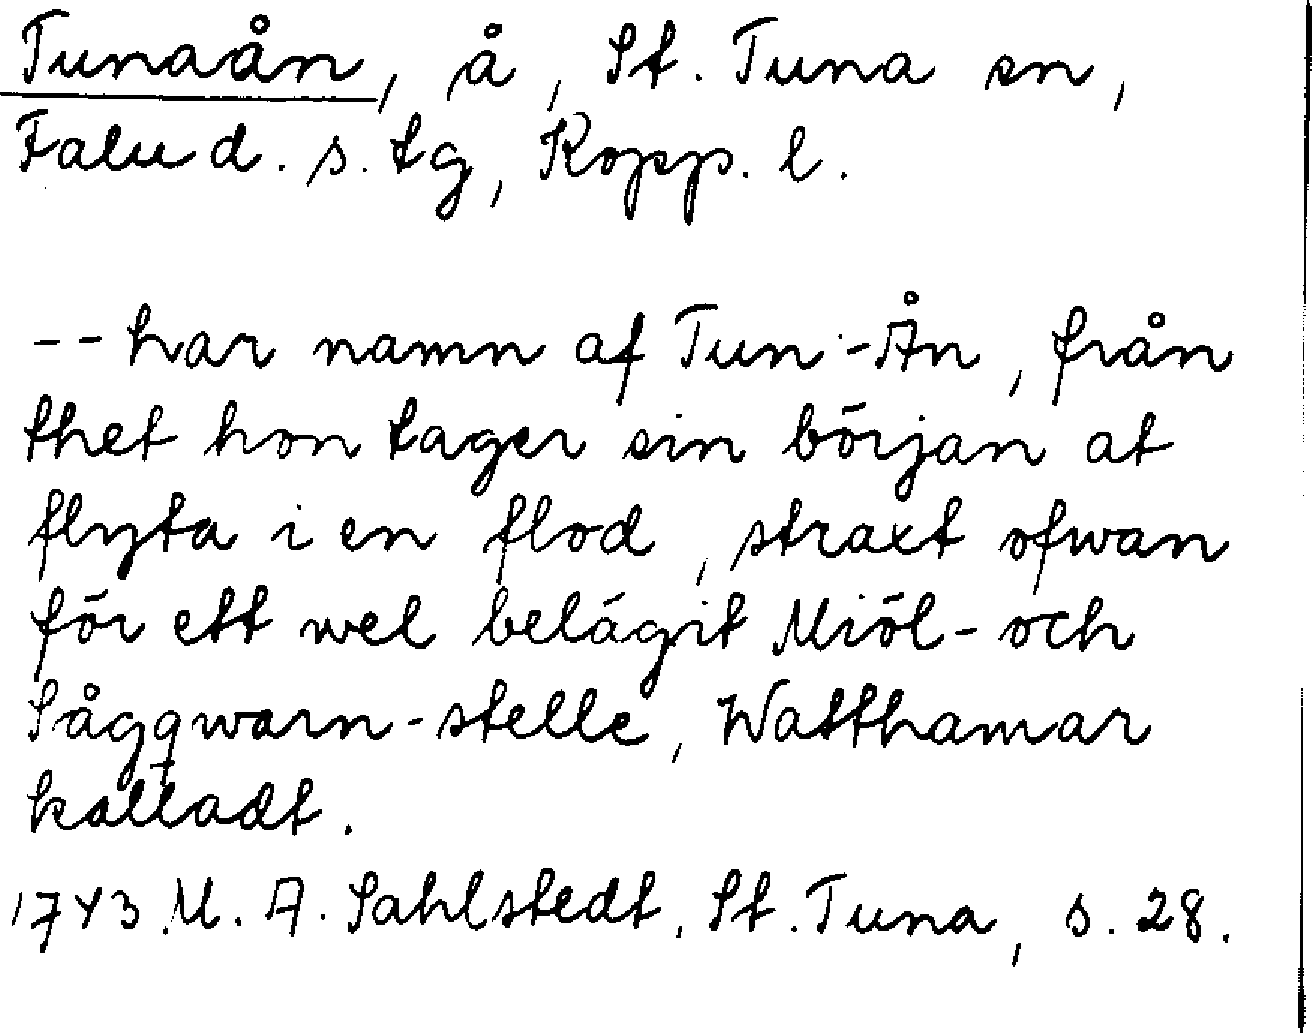 Tunaån, å, St. Tuna sn,
Falu d. s. tg, Kopp. l.
-- har namn af Tun-Ån, från
thet hon tager sin början at
flyta i en flod, straxt ofwan
för ett wel belägit Miöl- och
Sågqwarn-stelle, Watthamar
kalladt.
1743 M. A. Sahlstedt, St. Tuna, s. 28.